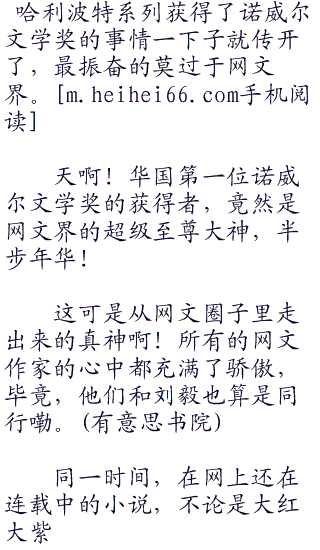 哈利波特系列获得了诺威尔
文学奖的事情一下子就传开
了，最振奋的莫过于网文
界。[m.heihei66.com手机阅
读]
天啊！华国第一位诺威
尔文学奖的获得者，竟然是
网文界的超级至尊大神，半
步年华！
这可是从网文圈子里走
出来的真神啊！所有的网文
作家的心中都充满了骄傲，
毕竟，他们和刘毅也算是同
行嘞。(有意思书院)
同一时间，在网上还在
连载中的小说，不论是大红
大紫